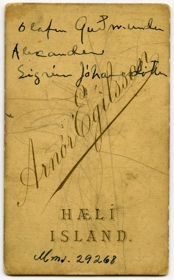 Olafur Guðmunds
Alexander
Sigrún Jóhannsdóttir
Arnór Egilsson
HÆLI
ISLAND.
Mms. 29268